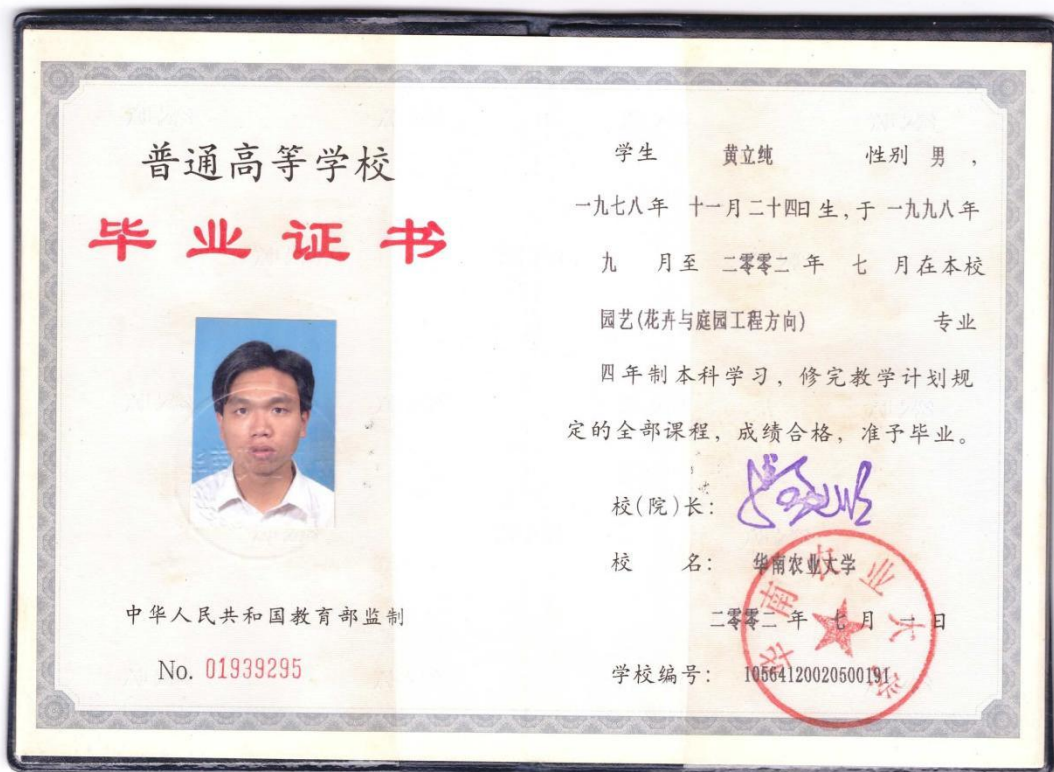 普通高等学校
毕业证书
中华人民共和国教育部监制
No. 01939295
学生 黄立纯 性别 男 ,
一九七八年 十一月二十四日生,于一九九八年
九 月至 二零零二 年 七 月在本校
园艺(花卉与庭园工程方向) 专业
四年制本科学习，修完教学计划规
定的全部课程，成绩合格，准予毕业。
校(院)长:
校 名: 华南农业大学
二零零二 年 七 月 一 日
学校编号: 10564120020500191
华南农业大学